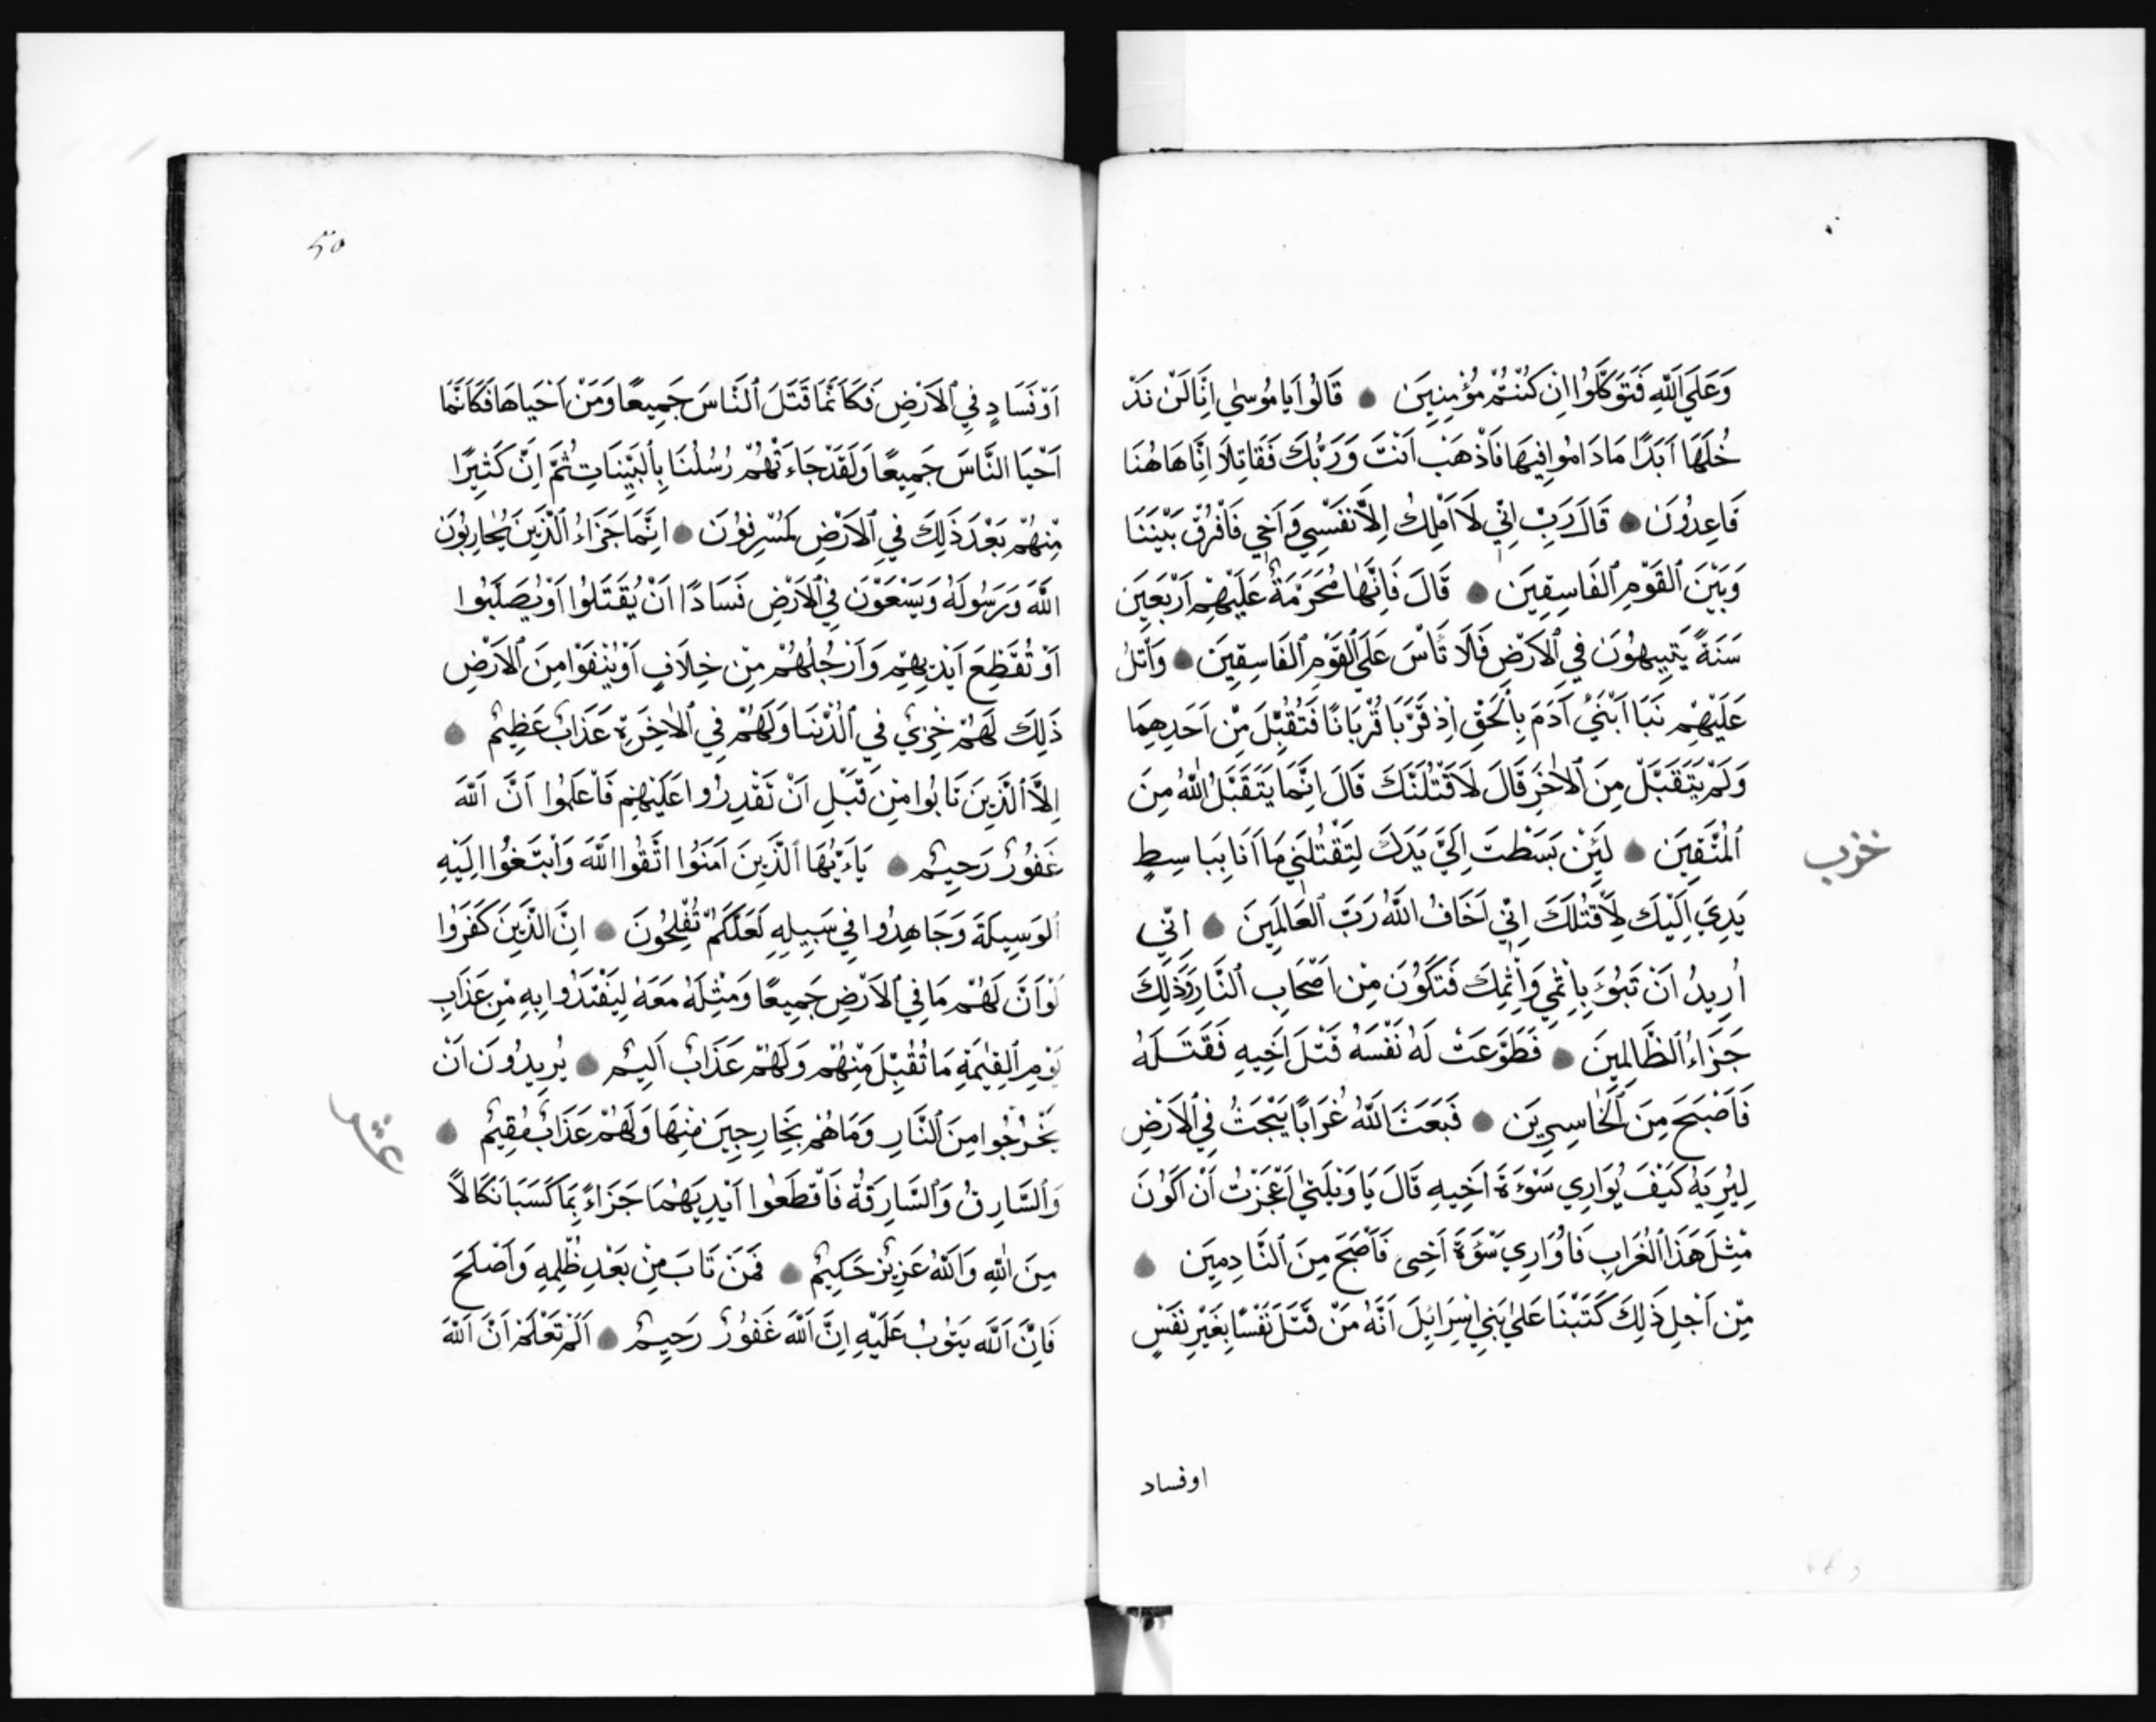 وَعَلَى اللّٰهِ فَتَوَكَّلُوا اِنْ كُنْتُمْ مُؤْمِنِينَ قَالُوا يَا مُوسٰى اِنَّا لَنْ نَدْ
خُلَهَا اَبَدًا مَا دَامُوا فِيهَا فَاذْهَبْ اَنْتَ وَرَبُّكَ فَقَاتِلَا اِنَّا هَاهُنَا
قَاعِدُونَ قَالَ رَبِّ اِنِّي لَا اَمْلِكُ اِلَّا نَفْسِي وَاَخِي فَافْرُقْ بَيْنَنَا
وَبَيْنَ الْقَوْمِ الْفَاسِقِينَ قَالَ فَاِنَّهَا مُحَرَّمَةٌ عَلَيْهِمْ اَرْبَعِينَ
سَنَةً يَتِيهُونَ فِي الْاَرْضِ فَلَا تَأْسَ عَلَى الْقَوْمِ الْفَاسِقِينَ وَاتْلُ
عَلَيْهِمْ نَبَاَ ابْنَيْ اٰدَمَ بِالْحَقِّ اِذْ قَرَّبَا قُرْبَانًا فَتُقُبِّلَ مِنْ اَحَدِهِمَا
وَلَمْ يُتَقَبَّلْ مِنَ الْاٰخَرِ قَالَ لَاَقْتُلَنَّكَ قَالَ اِنَّمَا يَتَقَبَّلُ اللّٰهُ مِنَ
الْمُتَّقِينَ لَئِنْ بَسَطْتَ اِلَيَّ يَدَكَ لِتَقْتُلَنِي مَا اَنَا بِبَاسِطٍ
حزب
يَدِيَ اِلَيْكَ لِاَقْتُلَكَ اِنِّي اَخَافُ اللّٰهَ رَبَّ الْعَالَمِينَ اِنِّي
اُرِيدُ اَنْ تَبُوءَ بِاِثْمِي وَاِثْمِكَ فَتَكُونَ مِنْ اَصْحَابِ النَّارِ وَذٰلِكَ
جَزَاءُ الظَّالِمِينَ فَطَوَّعَتْ لَهُ نَفْسُهُ قَتْلَ اَخِيهِ فَقَتَلَهُ
فَاَصْبَحَ مِنَ الْخَاسِرِينَ فَبَعَثَ اللّٰهُ غُرَابًا يَبْحَثُ فِي الْاَرْضِ
لِيُرِيَهُ كَيْفَ يُوَارِي سَوْءَةَ اَخِيهِ قَالَ يَا وَيْلَتٰى اَعَجَزْتُ اَنْ اَكُونَ
مِثْلَ هٰذَا الْغُرَابِ فَاُوَارِيَ سَوْءَةَ اَخِي فَاَصْبَحَ مِنَ النَّادِمِينَ
مِنْ اَجْلِ ذٰلِكَ كَتَبْنَا عَلٰى بَنِي اِسْرَائِلَ اَنَّهُ مَنْ قَتَلَ نَفْسًا بِغَيْرِ نَفْسٍ
اوفساد
اَوْ فَسَادٍ فِي الْاَرْضِ فَكَاَنَّمَا قَتَلَ النَّاسَ جَمِيعًا وَمَنْ اَحْيَاهَا فَكَاَنَّمَا
اَحْيَا النَّاسَ جَمِيعًا وَلَقَدْ جَاءَتْهُمْ رُسُلُنَا بِالْبَيِّنَاتِ ثُمَّ اِنَّ كَثِيرًا
مِنْهُمْ بَعْدَ ذٰلِكَ فِي الْاَرْضِ لَمُسْرِفُونَ اِنَّمَا جَزَاءُ الَّذِينَ يُحَارِبُونَ
اللّٰهَ وَرَسُولَهُ وَيَسْعَوْنَ فِي الْاَرْضِ فَسَادًا اَنْ يُقَتَّلُوا اَوْ يُصَلَّبُوا
اَوْ تُقَطَّعَ اَيْدِيهِمْ وَاَرْجُلُهُمْ مِنْ خِلَافٍ اَوْ يُنْفَوْا مِنَ الْاَرْضِ
ذٰلِكَ لَهُمْ خِزْيٌ فِي الدُّنْيَا وَلَهُمْ فِي الْاٰخِرَةِ عَذَابٌ عَظِيمٌ
اِلَّا الَّذِينَ تَابُوا مِنْ قَبْلِ اَنْ تَقْدِرُوا عَلَيْهِمْ فَاعْلَمُوا اَنَّ اللّٰهَ
غَفُورٌ رَحِيمٌ يَا اَيُّهَا الَّذِينَ اٰمَنُوا اتَّقُوا اللّٰهَ وَابْتَغُوا اِلَيْهِ
الْوَسِيلَةَ وَجَاهِدُوا فِي سَبِيلِهِ لَعَلَّكُمْ تُفْلِحُونَ اِنَّ الَّذِينَ كَفَرُوا
لَوْ اَنَّ لَهُمْ مَا فِي الْاَرْضِ جَمِيعًا وَمِثْلَهُ مَعَهُ لِيَفْتَدُوا بِهِ مِنْ عَذَابِ
يَوْمِ الْقِيٰمَةِ مَا تُقُبِّلَ مِنْهُمْ وَلَهُمْ عَذَابٌ اَلِيمٌ يُرِيدُونَ اَنْ
يَخْرُجُوا مِنَ النَّارِ وَمَا هُمْ بِخَارِجِينَ مِنْهَا وَلَهُمْ عَذَابٌ مُقِيمٌ
عشر
وَالسَّارِقُ وَالسَّارِقَةُ فَاقْطَعُوا اَيْدِيَهُمَا جَزَاءً بِمَا كَسَبَا نَكَالًا
مِنَ اللّٰهِ وَاللّٰهُ عَزِيزٌ حَكِيمٌ فَمَنْ تَابَ مِنْ بَعْدِ ظُلْمِهِ وَاَصْلَحَ
فَاِنَّ اللّٰهَ يَتُوبُ عَلَيْهِ اِنَّ اللّٰهَ غَفُورٌ رَحِيمٌ اَلَمْ تَعْلَمْ اَنَّ اللّٰهَ